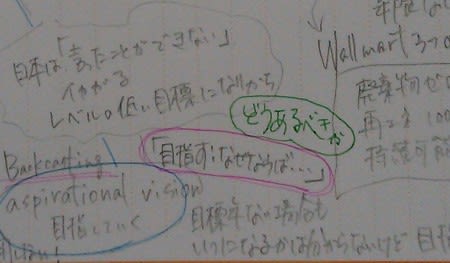 年限な
Wallmart 3つの
日本は「言ったことができない」
イカがる
レベルの低い目標になりがち
どうあるべきか
廃棄物ゼロ
再エネ 100
持続可能
「目指す：なせばなる…」
Backcasting
aspirational vision
目指していく
目標年ない場合も
いつになるかは分からないけど 目